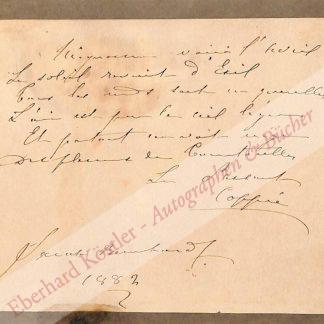 Mignonne voici l'Avril
Le soleil revient d'Exil
Tous les nids sont en querelles
L'air est pur le ciel léger
Et partout on voit
Des plumes de Tourterelles
Le Passant
Coppée
Sarah Bernhardt
1882
Eberhard Köstler - Autographen & Bücher